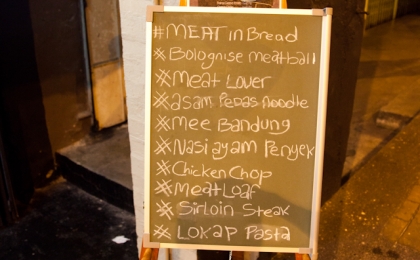 # MEAT in Bread
* Bolognise meatball
* Meat Lover
* asam Pedas Noodle
* mee Bandung
* Nasi ayam Penyek
* Chicken Chop
* Meat Loaf
* Sirloin Steak
* LOKap Pasta